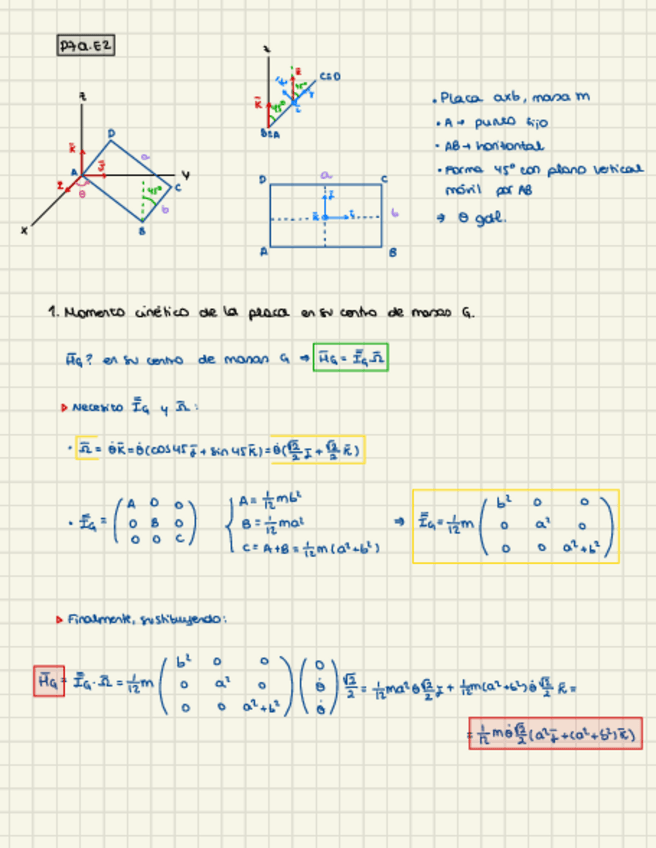 P7a.E2
• Placa axb, masa m
• A → punto fijo
• AB → horizontal
• Forma 45° con plano vertical
móvil por AB
→ θ gdl.
z
D
a
A
y
45°
C
b
θ
B
x
z
C≡D
45°
B≡A
D
a
C
b
A
B
1. Momento cinético de la placa en su centro de masas G.
H̄G? en su centro de masas G → H̄G = ĪG·Ω̄
Necesito ĪG y Ω̄:
• Ω̄ = θ̇K̄ = θ̇(cos45 j̄ + sin45 k̄) = θ̇(√2/2 j̄ + √2/2 k̄)
• ĪG = (A 0 0 / 0 B 0 / 0 0 C) { A = 1/12 mb² / B = 1/12 ma² / C = A+B = 1/12 m(a²+b²) → ĪG = 1/12 m (b² 0 0 / 0 a² 0 / 0 0 a²+b²)
Finalmente, sustituyendo:
H̄G = ĪG·Ω̄ = 1/12 m (b² 0 0 / 0 a² 0 / 0 0 a²+b²) (0 / θ̇ / θ̇) √2/2 = 1/12 ma² θ̇ √2/2 j̄ + 1/12 m(a²+b²) θ̇ √2/2 k̄ =
= 1/12 m θ̇ √2/2 (a² j̄ + (a²+b²) k̄)